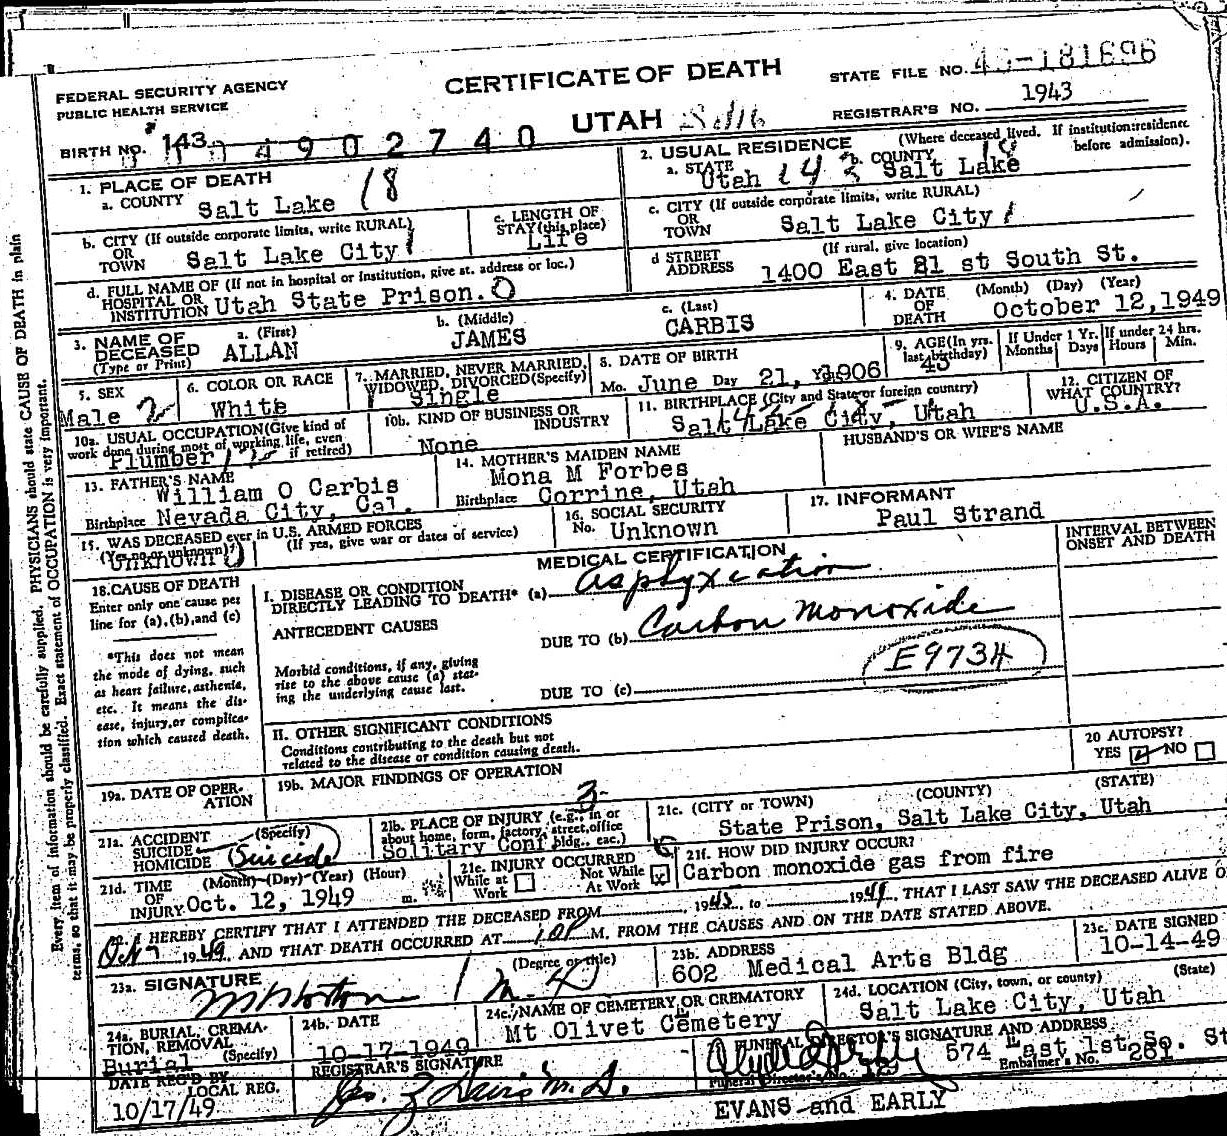 CERTIFICATE OF DEATH
STATE FILE NO. 49-181696
FEDERAL SECURITY AGENCY
PUBLIC HEALTH SERVICE
UTAH
REGISTRAR'S NO. 1943
BIRTH NO. 143
4902740
1. PLACE OF DEATH
a. COUNTY Salt Lake 18
2. USUAL RESIDENCE (Where deceased lived. If institution: residence before admission).
a. STATE Utah b. COUNTY Salt Lake
b. CITY (If outside corporate limits, write RURAL)
OR TOWN Salt Lake City
c. LENGTH OF STAY (this place)
Life
c. CITY (If outside corporate limits, write RURAL)
OR TOWN Salt Lake City
d. FULL NAME OF (If not in hospital or institution, give st. address or loc.)
HOSPITAL OR INSTITUTION Utah State Prison.
d STREET ADDRESS (If rural, give location)
1400 East 21 st South St.
3. NAME OF DECEASED (Type or Print)
a. (First) ALLAN
b. (Middle) JAMES
c. (Last) CARBIS
4. DATE OF DEATH (Month) (Day) (Year)
October 12, 1949
5. SEX
Male
6. COLOR OR RACE
White
7. MARRIED, NEVER MARRIED, WIDOWED, DIVORCED (Specify)
Single
8. DATE OF BIRTH
Mo. June Day 21, Yr. 1906
9. AGE (In yrs. last birthday)
43
If Under 1 Yr. Months Days
If under 24 hrs. Hours Min.
10a. USUAL OCCUPATION (Give kind of work done during most of working life, even if retired)
Plumber
10b. KIND OF BUSINESS OR INDUSTRY
None
11. BIRTHPLACE (City and State or foreign country)
Salt Lake City, Utah
12. CITIZEN OF WHAT COUNTRY?
U.S.A.
13. FATHER'S NAME
William O Carbis
Birthplace Nevada City, Cal.
14. MOTHER'S MAIDEN NAME
Mona M Forbes
Birthplace Corrine, Utah
HUSBAND'S OR WIFE'S NAME
15. WAS DECEASED ever in U.S. ARMED FORCES
(Yes, no, or unknown) (If yes, give war or dates of service)
Unknown
16. SOCIAL SECURITY
No. Unknown
17. INFORMANT
Paul Strand
MEDICAL CERTIFICATION
INTERVAL BETWEEN ONSET AND DEATH
18. CAUSE OF DEATH
Enter only one cause per line for (a), (b), and (c)
*This does not mean the mode of dying, such as heart failure, asthenia, etc. It means the disease, injury, or complication which caused death.
I. DISEASE OR CONDITION DIRECTLY LEADING TO DEATH* (a) Asphyxiation
ANTECEDENT CAUSES
DUE TO (b) Carbon Monoxide
Morbid conditions, if any, giving rise to the above cause (a) stating the underlying cause last.
DUE TO (c)
E9734
II. OTHER SIGNIFICANT CONDITIONS
Conditions contributing to the death but not related to the disease or condition causing death.
19a. DATE OF OPERATION
19b. MAJOR FINDINGS OF OPERATION
20 AUTOPSY?
YES NO
21a. ACCIDENT SUICIDE HOMICIDE (Specify)
Suicide
21b. PLACE OF INJURY (e.g., in or about home, farm, factory, street, office bldg., eac.)
Solitary Conf
21c. (CITY or TOWN) (COUNTY) (STATE)
State Prison, Salt Lake City, Utah
21d. TIME OF INJURY (Month) (Day) (Year) (Hour)
Oct. 12, 1949 m.
21e. INJURY OCCURRED
While at Work Not While At Work
21f. HOW DID INJURY OCCUR?
Carbon monoxide gas from fire
22. I HEREBY CERTIFY THAT I ATTENDED THE DECEASED FROM 1945, to 1949, THAT I LAST SAW THE DECEASED ALIVE O
Oct 7 1949 AND THAT DEATH OCCURRED AT 10P M. FROM THE CAUSES AND ON THE DATE STATED ABOVE.
23a. SIGNATURE (Degree or title)
M. D.
23b. ADDRESS
602 Medical Arts Bldg
23c. DATE SIGNED
10-14-49
24a. BURIAL, CREMATION, REMOVAL (Specify)
Burial
24b. DATE
10-17-1949
24c. NAME OF CEMETERY OR CREMATORY
Mt Olivet Cemetery
24d. LOCATION (City, town, or county) (State)
Salt Lake City, Utah
DATE REC'D BY LOCAL REG.
10/17/49
REGISTRAR'S SIGNATURE
FUNERAL DIRECTOR'S SIGNATURE AND ADDRESS
574 East 1st So. St
Funeral Director's No.
Embalmer's No. 261
EVANS and EARLY
Every item of information should be carefully supplied. PHYSICIANS should state CAUSE OF DEATH in plain
terms, so that it may be properly classified. Exact statement of OCCUPATION is very important.